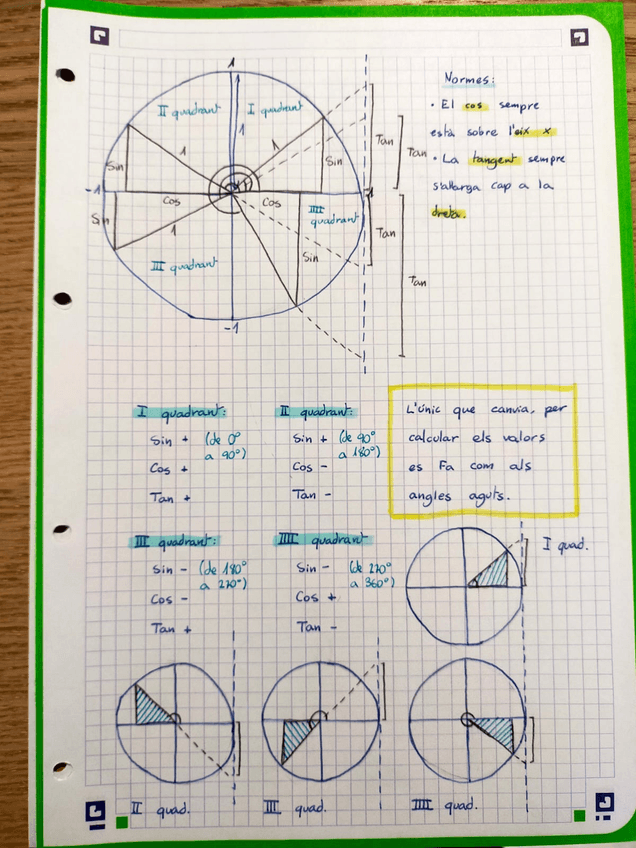 1
II quadrant
I quadrant
1
1
1
Sin
Sin
Tan
Tan
-1
Cos
Cos
1
Sin
1
IIII
quadrant
III quadrant
Sin
Tan
Tan
-1
Normes:
· El cos sempre
està sobre l'eix x
· La tangent sempre
s'allarga cap a la
dreta.
I quadrant:
Sin + (de 0º
a 90º)
Cos +
Tan +
II quadrant:
Sin + (de 90º
a 180º)
Cos -
Tan -
L'únic que canvia, per
calcular els valors
es fa com als
angles aguts.
III quadrant:
Sin - (de 180º
a 270º)
Cos -
Tan +
IIII quadrant
Sin - (de 270º
a 360º)
Cos +
Tan -
I quad.
II quad.
III quad.
IIII quad.